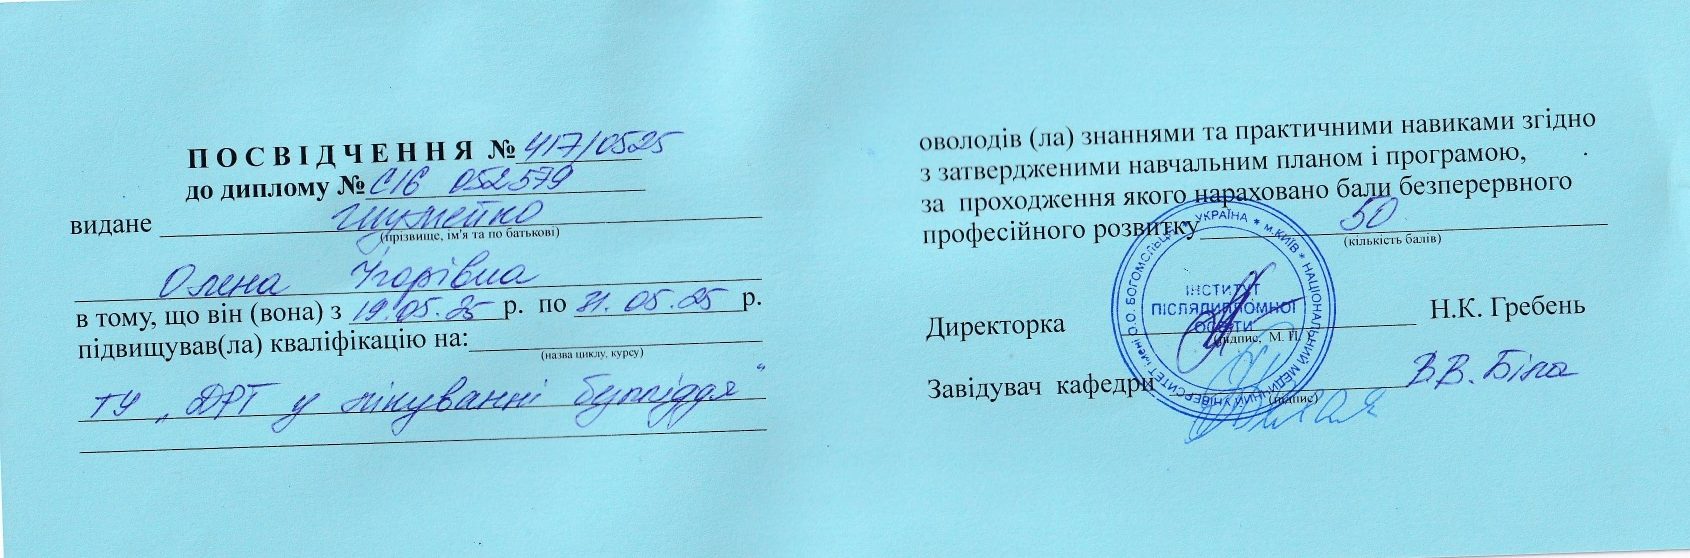 ПОСВІДЧЕННЯ № 417/0525
до диплому № С16 052579
видане Шумейко
(прізвище, ім'я та по батькові)
Олена Ігорівна
в тому, що він (вона) з 19.05.25 р. по 31.05.25 р.
підвищував(ла) кваліфікацію на:
(назва циклу, курсу)
ТУ „ДРТ у лікуванні безпліддя“
оволодів (ла) знаннями та практичними навиками згідно
з затвердженими навчальним планом і програмою,
за проходження якого нараховано бали безперервного
професійного розвитку 50
(кількість балів)
Директорка Н.К. Гребень
(підпис, М. П.)
Завідувач кафедри В.В. Біла
(підпис)
УКРАЇНА * м.КИЇВ * НАЦІОНАЛЬНИЙ МЕДИЧНИЙ УНІВЕРСИТЕТ імені О.О. БОГОМОЛЬЦЯ
ІНСТИТУТ
ПІСЛЯДИПЛОМНОЇ
ОСВІТИ